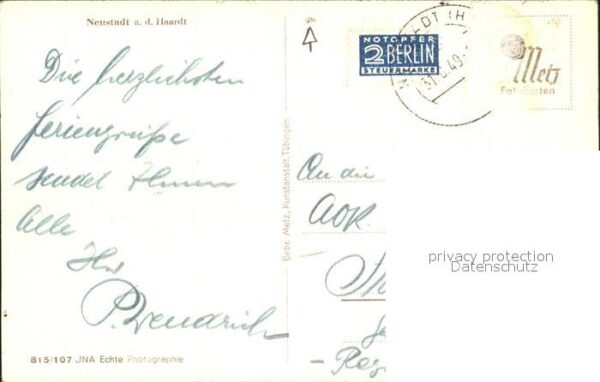 Neustadt a. d. Haardt
Die herzlichsten
Feriengrüße
sendet Ihnen
Alle
Ihr
P. Wendrich
815/107 JNA Echte Photographie
Gebr. Metz, Kunstanstalt, Tübingen
NOTOPFER
2 BERLIN
STEUERMARKE
Metz
Fotokarten
An die
AOK
privacy protection
Datenschutz